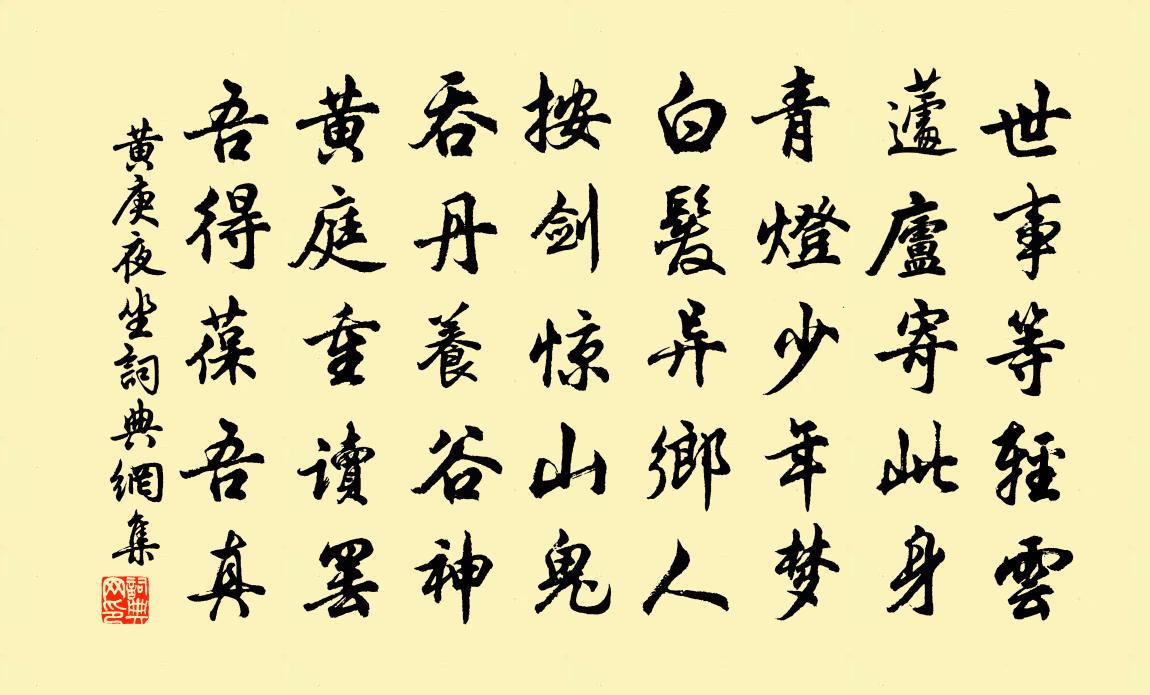 世事等輕雲
蘧廬寄此身
青燈少年梦
白髮异鄉人
按剑惊山鬼
吞丹養谷神
黄庭重讀罢
吾得葆吾真
黄庚夜坐詞典網集
詞典网印